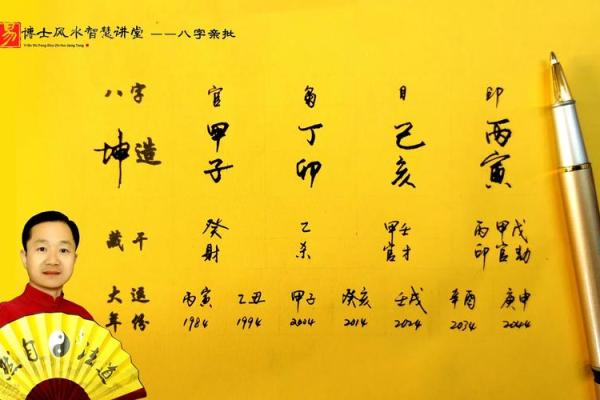 易 博士风水智慧讲堂 ——八字亲批
八字 官 枭 日 印
坤造 甲 丁 己 丙
子 卯 亥 寅
藏干 癸 乙 甲壬 丙甲戊
财 杀 官才 印官劫
大运 丙寅 乙丑 甲子 癸亥 壬戌 辛酉 庚申
年份 1984 1994 2004 2014 2024 2034 2044
然自 法道